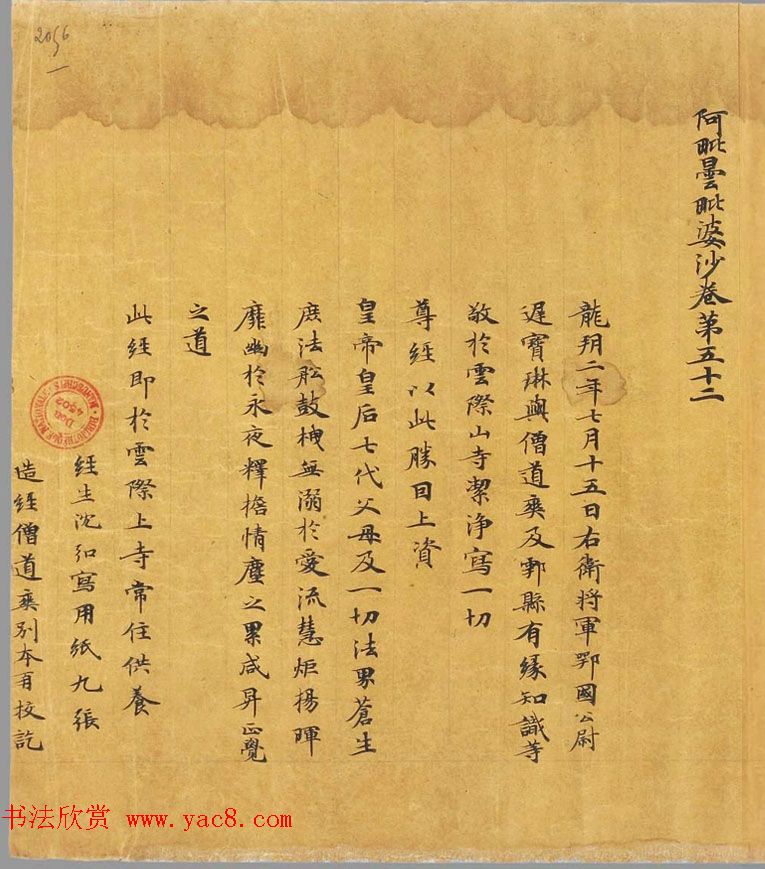 阿毗曇毗婆沙卷第五十二
龍朔二年七月十五日右衛將軍鄂國公尉
遲寶琳與僧道爽及鄠縣有緣知識等
敬於雲際山寺潔淨寫一切
尊經以此勝因上資
皇帝皇后七代父母及一切法界蒼生
庶法舩鼓栧無溺於愛流慧炬揚暉
靡幽於永夜釋擔情塵之累咸昇正覺
之道
此經即於雲際上寺常住供養
經生沈弘寫用紙九張
造經僧道爽別本再校訖
2056
BIBLIOTHÈQUE NATIONALE
MANUSCRITS
Don
4502
书法欣赏 www.yac8.com